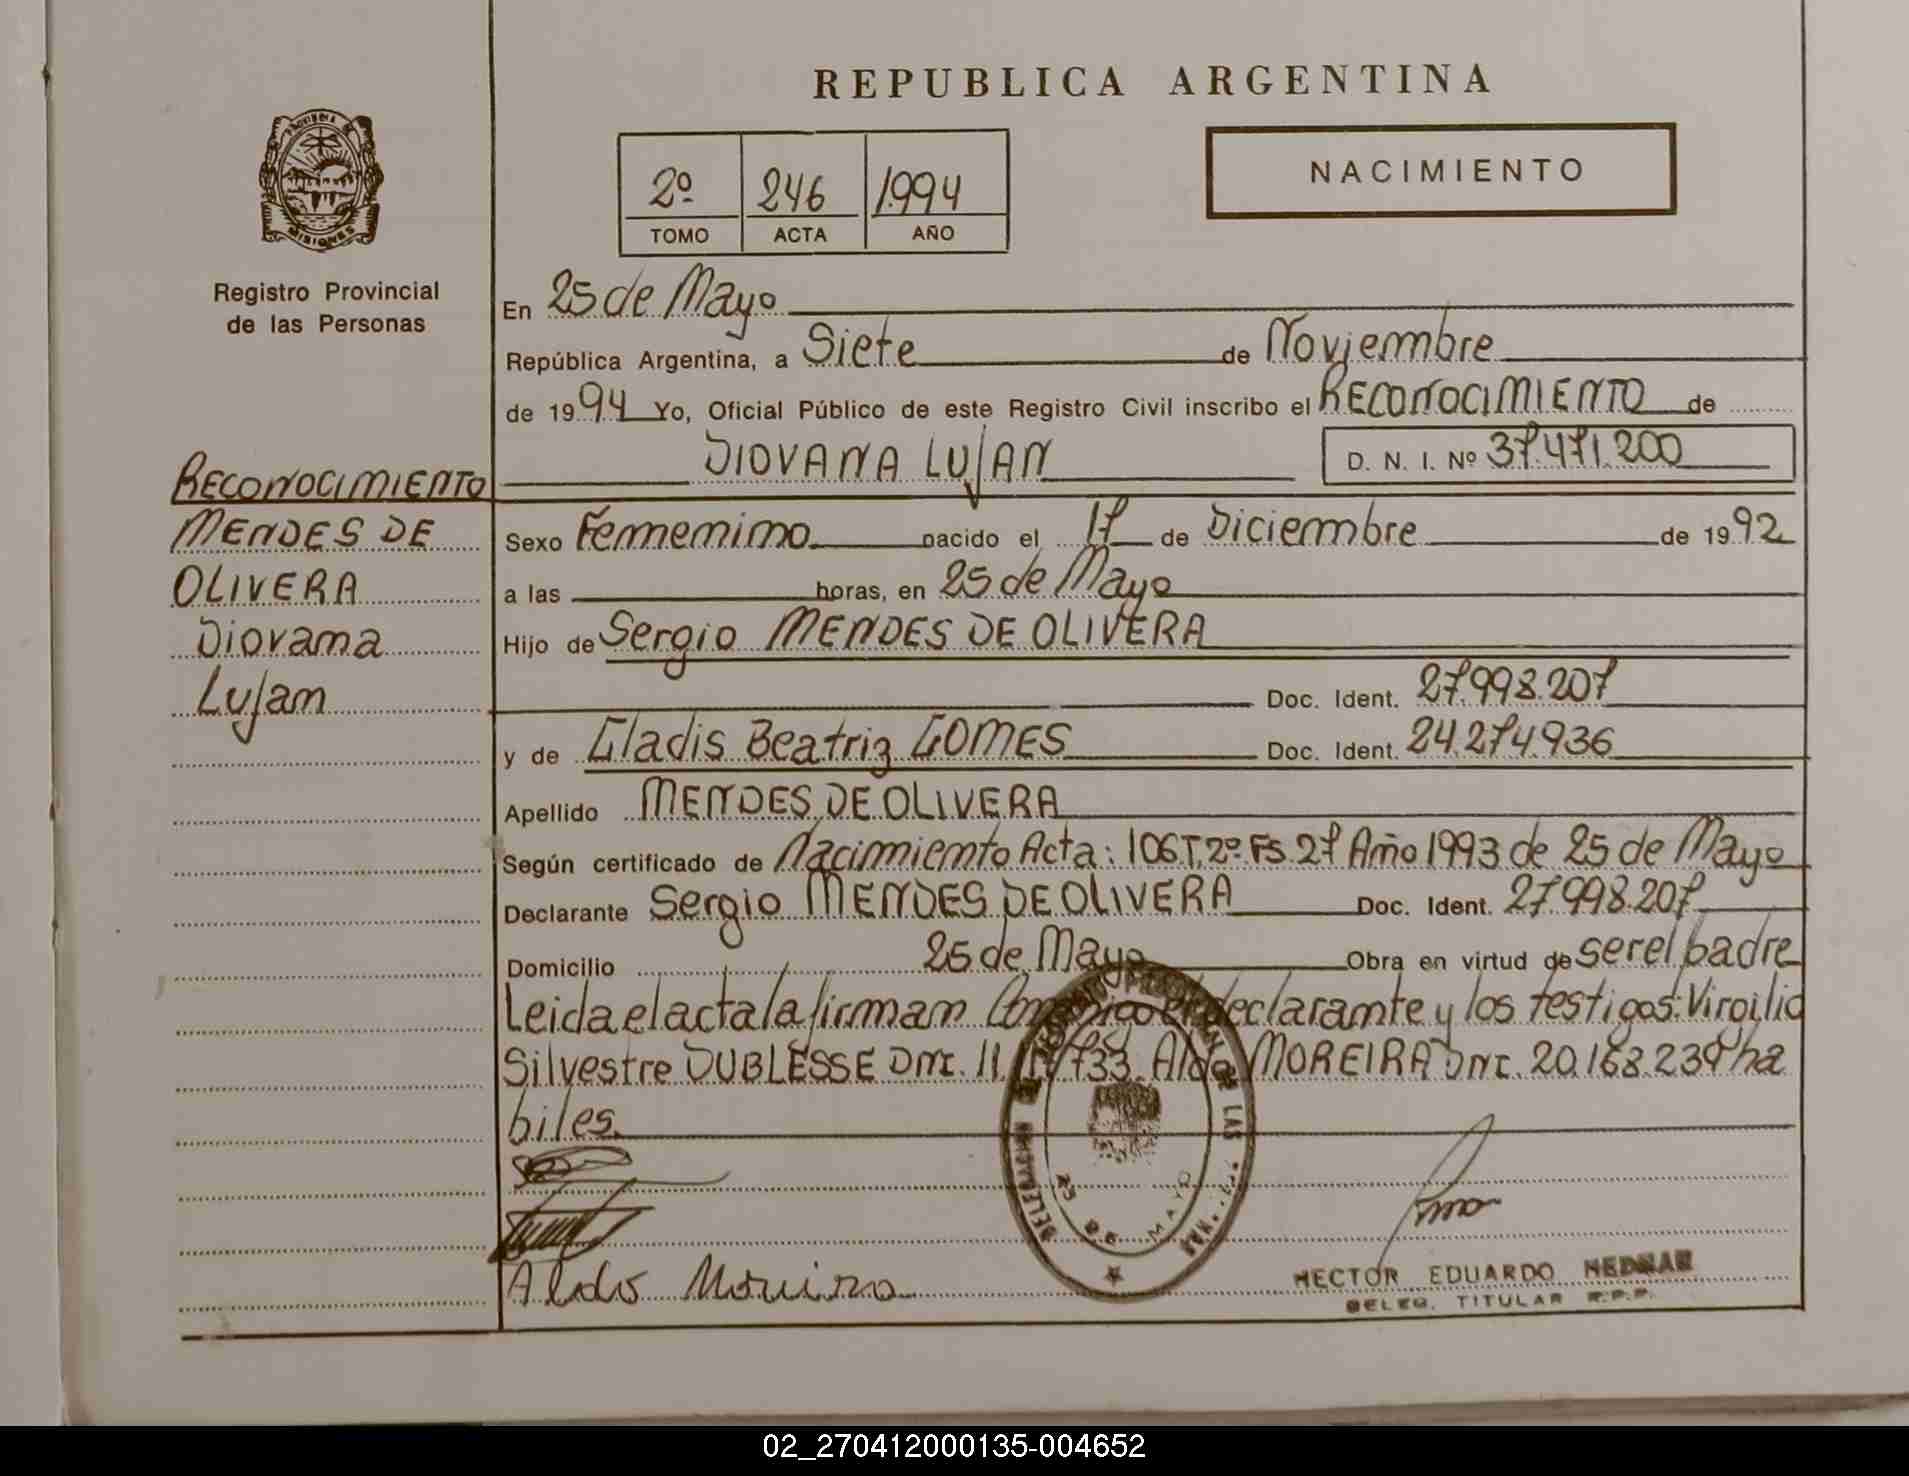 REPUBLICA ARGENTINA
PROVINCIA DE
MISIONES
2º 246 1994
TOMO ACTA AÑO
NACIMIENTO
Registro Provincial
de las Personas
En 25 de Mayo
República Argentina, a Siete de Noviembre
de 1994 Yo, Oficial Público de este Registro Civil inscribo el RECONOCIMIENTO de
DIOVANA LUJAN D. N. I. Nº 37.471.200
RECONOCIMIENTO
MENDES DE
OLIVERA
Diovana
Lujan
Sexo Femenino nacido el 17 de Diciembre de 1992
a las horas, en 25 de Mayo
Hijo de Sergio MENDES DE OLIVERA
Doc. Ident. 27.998.207
y de Gladis Beatriz GOMES Doc. Ident. 24.274.936
Apellido MENDES DE OLIVERA
Según certificado de Nacimiento Acta: 106 T, 2º Fs. 27 Año 1993 de 25 de Mayo
Declarante Sergio MENDES DE OLIVERA Doc. Ident. 27.998.207
Domicilio 25 de Mayo Obra en virtud de ser el padre
Leida el acta la firman Conmigo el declarante y los testigos: Virgilio
Silvestre DUBLESSE DNI. 11. 733. Aldo MOREIRA DNI. 20.168.239 ha
biles.
25 DE MAYO
Aldo Moreira
HECTOR EDUARDO
DELEG. TITULAR R.P.P.
02_270412000135-004652